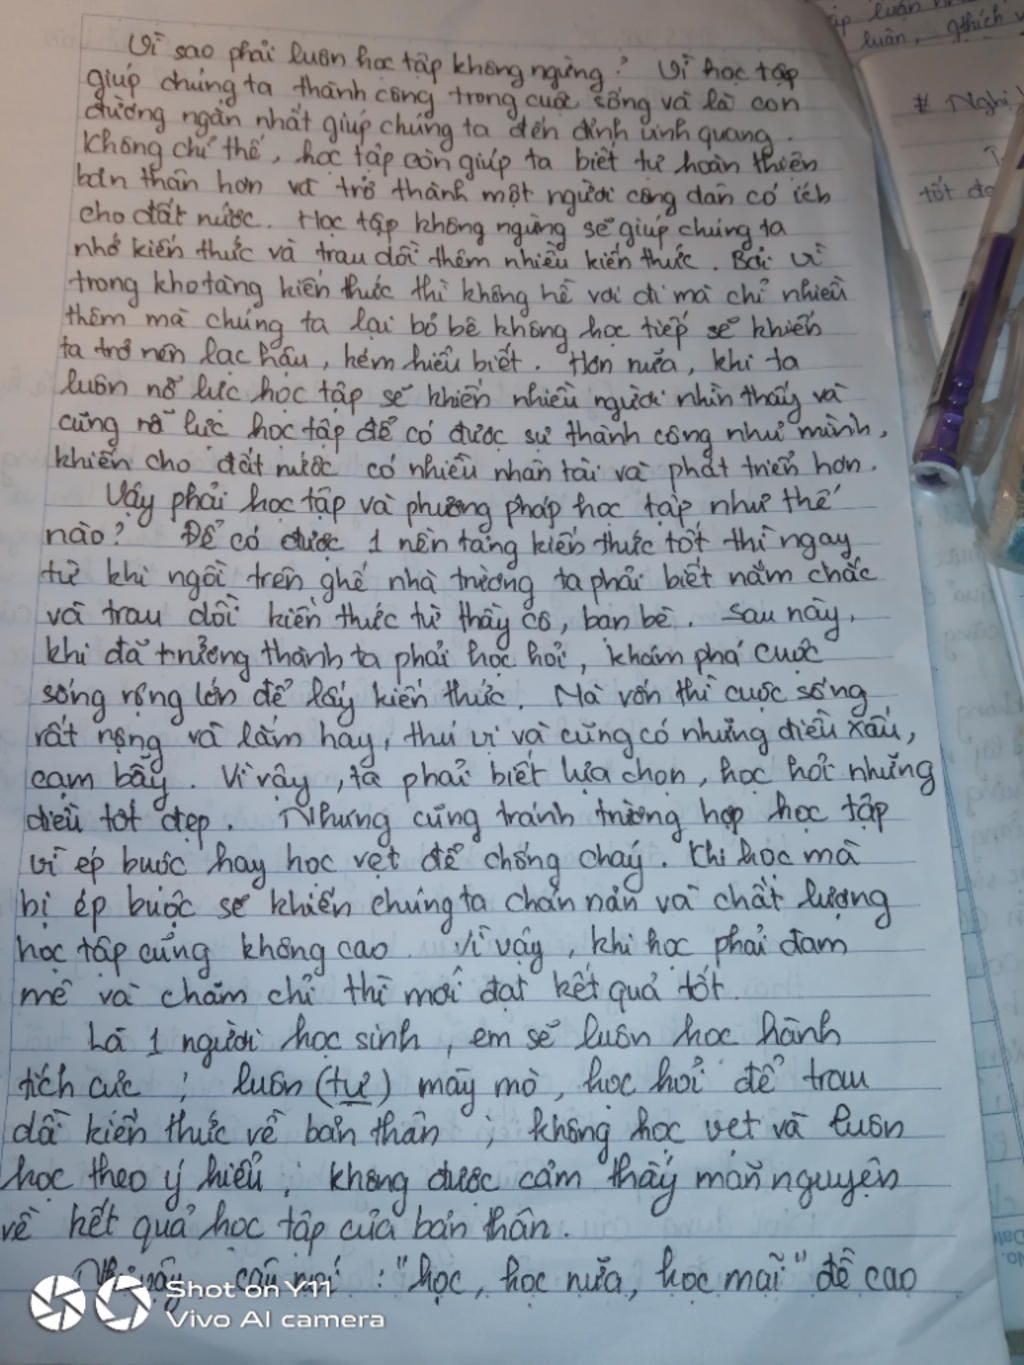 Vì sao phải luôn học tập không ngừng? Vì học tập
giúp chúng ta thành công trong cuộc sống và là con
đường ngắn nhất giúp chúng ta đến đỉnh vinh quang.
Không chỉ thế, học tập còn giúp ta biết tự hoàn thiện
bản thân hơn và trở thành một người công dân có ích
cho đất nước. Học tập không ngừng sẽ giúp chúng ta
nhớ kiến thức và trau dồi thêm nhiều kiến thức. Bởi vì
trong kho tàng kiến thức thì không hề vơi đi mà chỉ nhiều
thêm mà chúng ta lại bỏ bê không học tiếp sẽ khiến
ta trở nên lạc hậu, kém hiểu biết. Hơn nữa, khi ta
luôn nỗ lực học tập sẽ khiến nhiều người nhìn thấy và
cũng nỗ lực học tập để có được sự thành công như mình,
khiến cho đất nước có nhiều nhân tài và phát triển hơn.
Vậy phải học tập và phương pháp học tập như thế
nào? Để có được 1 nền tảng kiến thức tốt thì ngay
từ khi ngồi trên ghế nhà trường ta phải biết nắm chắc
và trau dồi kiến thức từ thầy cô, bạn bè. Sau này,
khi đã trưởng thành ta phải học hỏi, khám phá cuộc
sống rộng lớn để lấy kiến thức. Mà vốn thì cuộc sống
rất rộng và lắm hay, thú vị và cũng có những điều xấu,
cạm bẫy. Vì vậy, ta phải biết lựa chọn, học hỏi những
điều tốt đẹp. Nhưng cũng tránh trường hợp học tập
vì ép buộc hay học vẹt để chống cháy. Khi học mà
bị ép buộc sẽ khiến chúng ta chán nản và chất lượng
học tập cũng không cao. Vì vậy, khi học phải đam
mê và chăm chỉ thì mới đạt kết quả tốt.
Là 1 người học sinh, em sẽ luôn học hành
tích cực; luôn (tự) mày mò, học hỏi để trau
dồi kiến thức về bản thân; không học vẹt và luôn
học theo ý hiểu; không được cảm thấy mãn nguyện
về kết quả học tập của bản thân.
vậy câu nói: "học, học nữa, học mãi" đề cao
Shot on Y11
Vivo AI camera
luận
luận, gthích
# Nghị
tốt đẹ